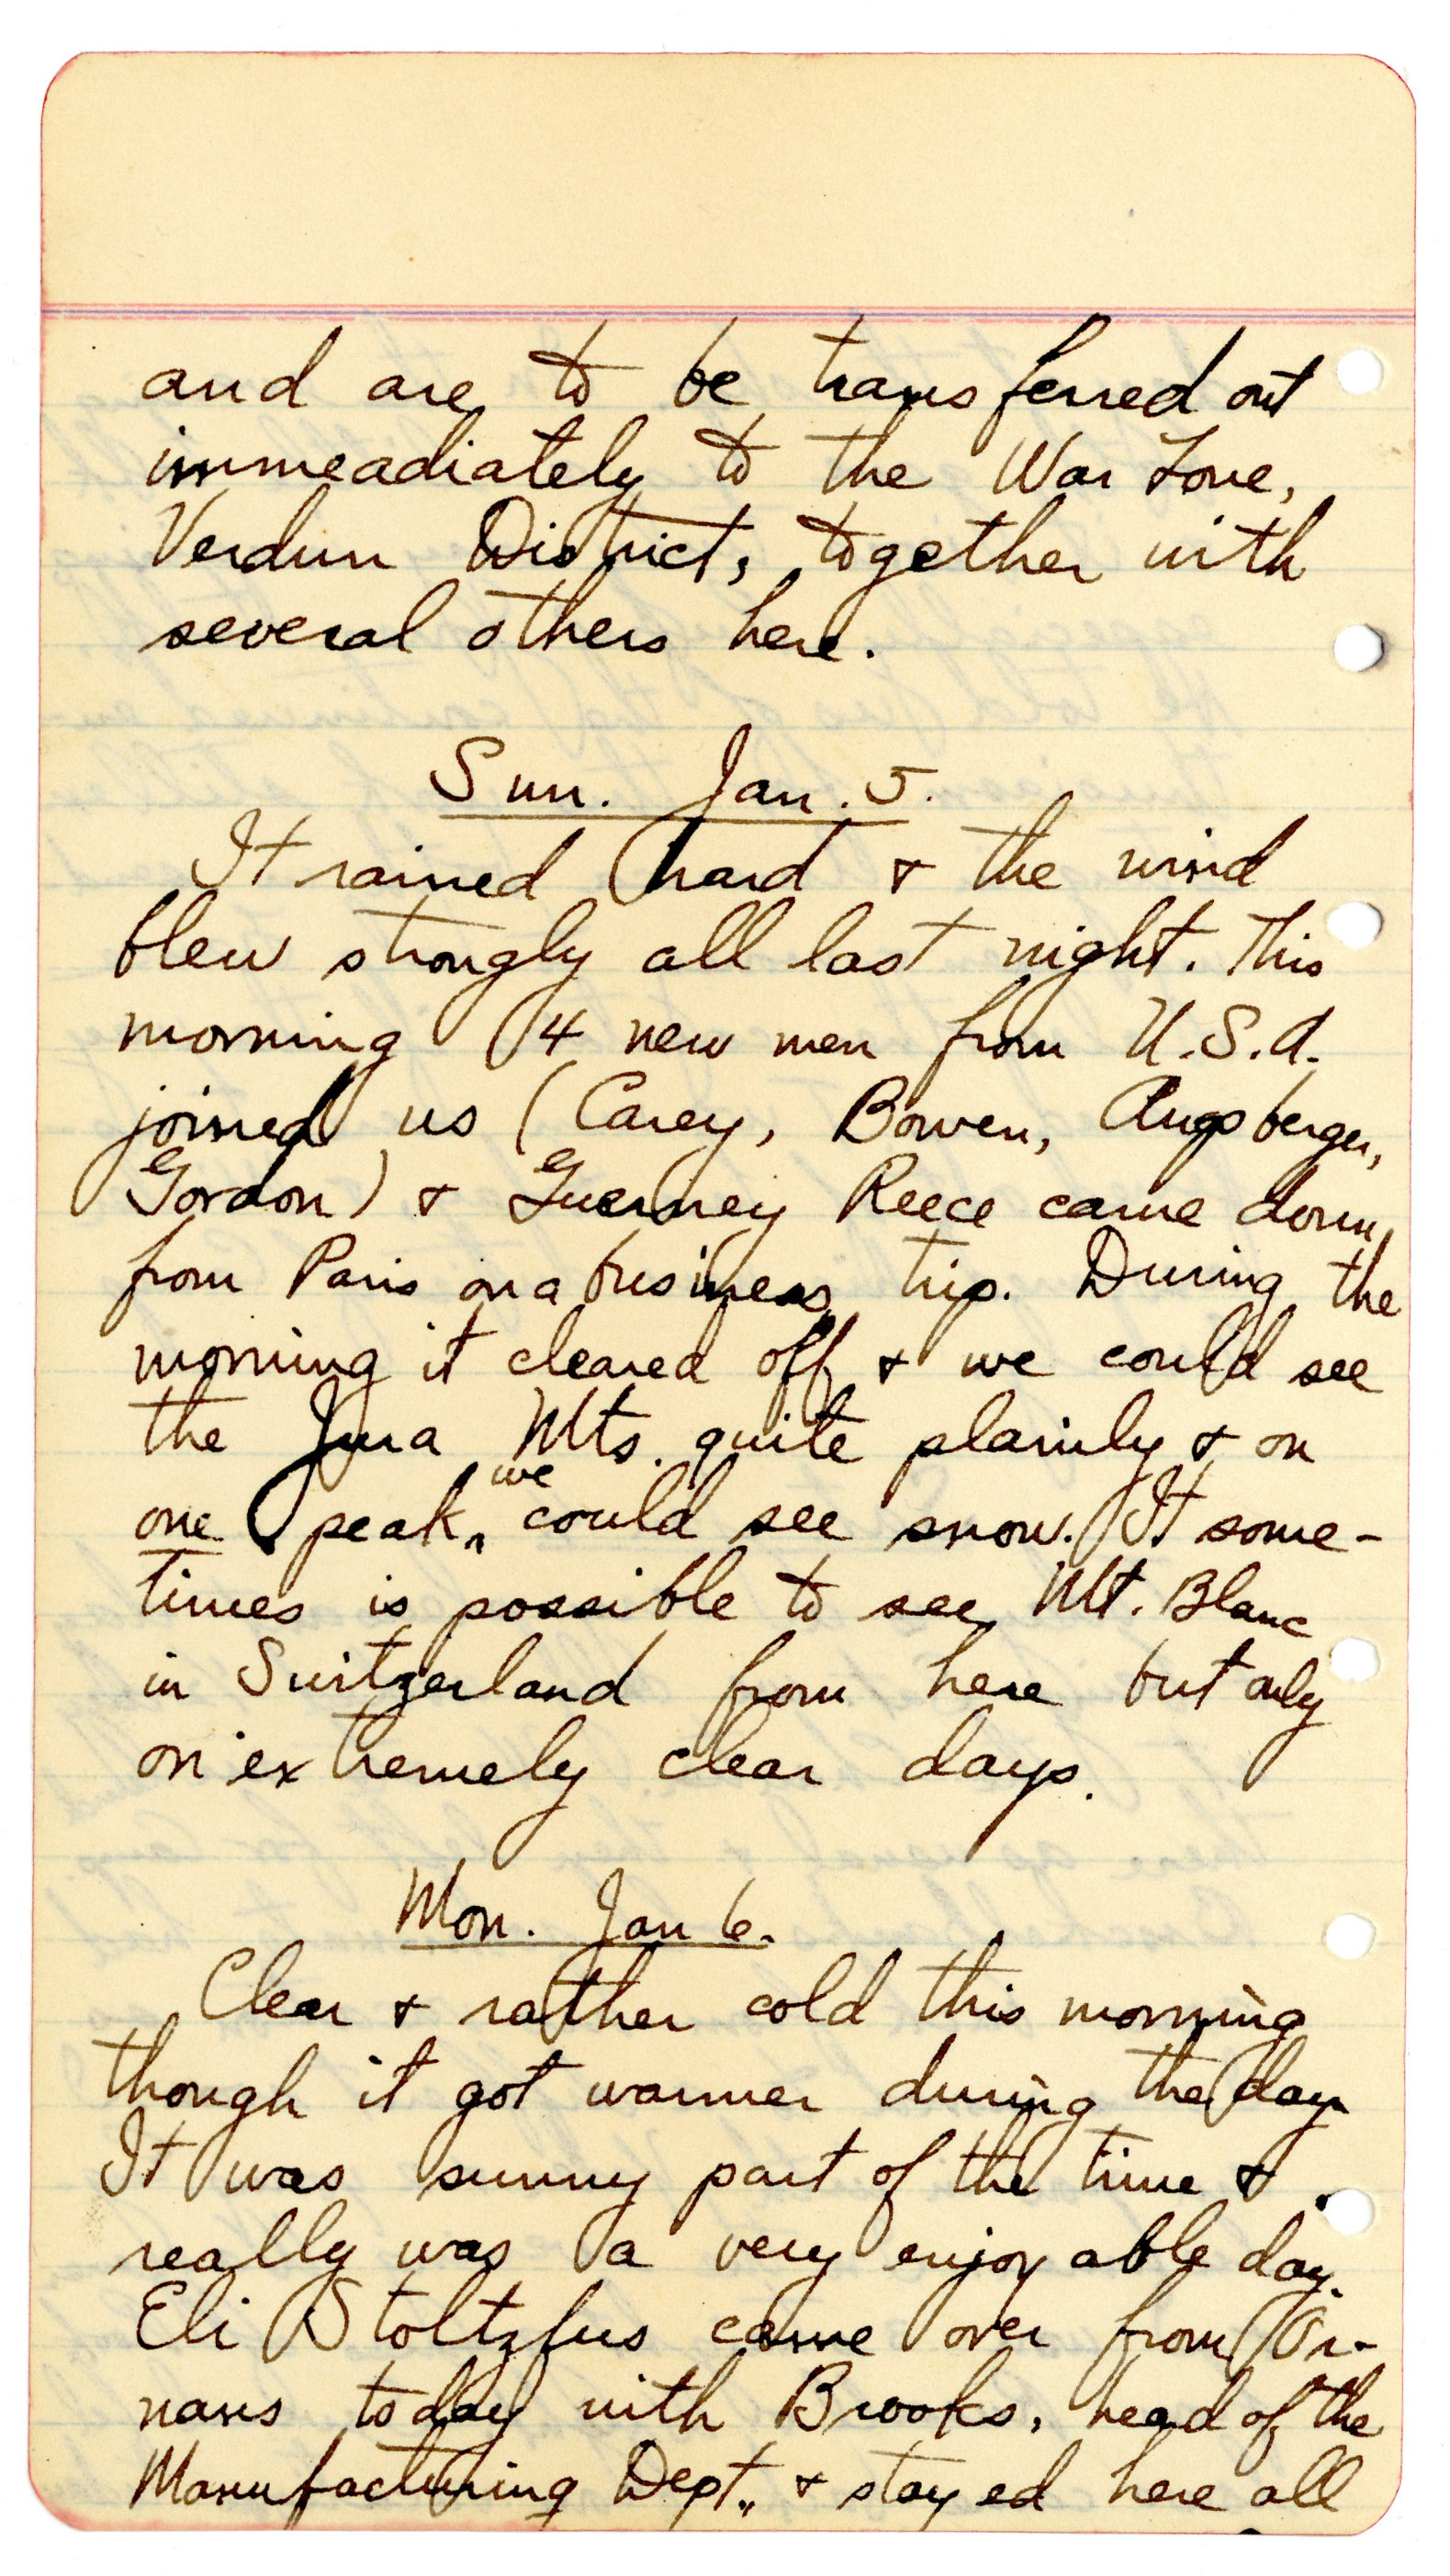 and are to be transferred out
immeadiately to the War Zone,
Verdun District, together with
several others here.
Sun. Jan. 5.
It rained hard & the wind
blew strongly all last night. This
morning 4 new men from U.S.A.
joined us (Carey, Bowen, Augsberger,
Gordon) & Guerney Reece came down
from Paris on a business trip. During the
morning it cleared off & we could see
the Jura Mts. quite plainly & on
one peak, we could see snow. It some-
times is possible to see Mt. Blanc
in Switzerland from here but only
on extremely clear days.
Mon. Jan 6.
Clear & rather cold this morning
though it got warmer during the day
It was sunny part of the time &
really was a very enjoyable day.
Eli Stoltzfus came over from Or-
nans today with Brooks, head of the
Manufacturing Dept., & stayed here all